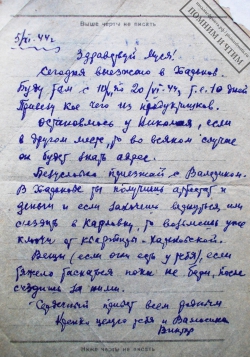 Выше черты не писать
ПОМНИМ И ЧТИМ
5/VI-44 г.
Здравствуй Муся!
Сегодня выезжаю в Харьков.
Буду там с 10/VI по 20/VI-44, т.е. 10 дней
Привезу кое чего из продуктишков.
Остановлюсь у Николая, если
в другом месте, то во всяком случае
он будет знать адрес.
приезжай с Валериком.
В Харькове ты получишь аттестат и
деньги и если захочешь вернуться или
съездить в Карловку, то возьмешь у нее
ключи от квартиры
Вещи (если они есть у тебя), если
тяжело таскаться пока не бери, после
съездишь за ними.
Сердечный привет всем родным
Крепко целую тебя и
Виктор
Ниже черты не писать